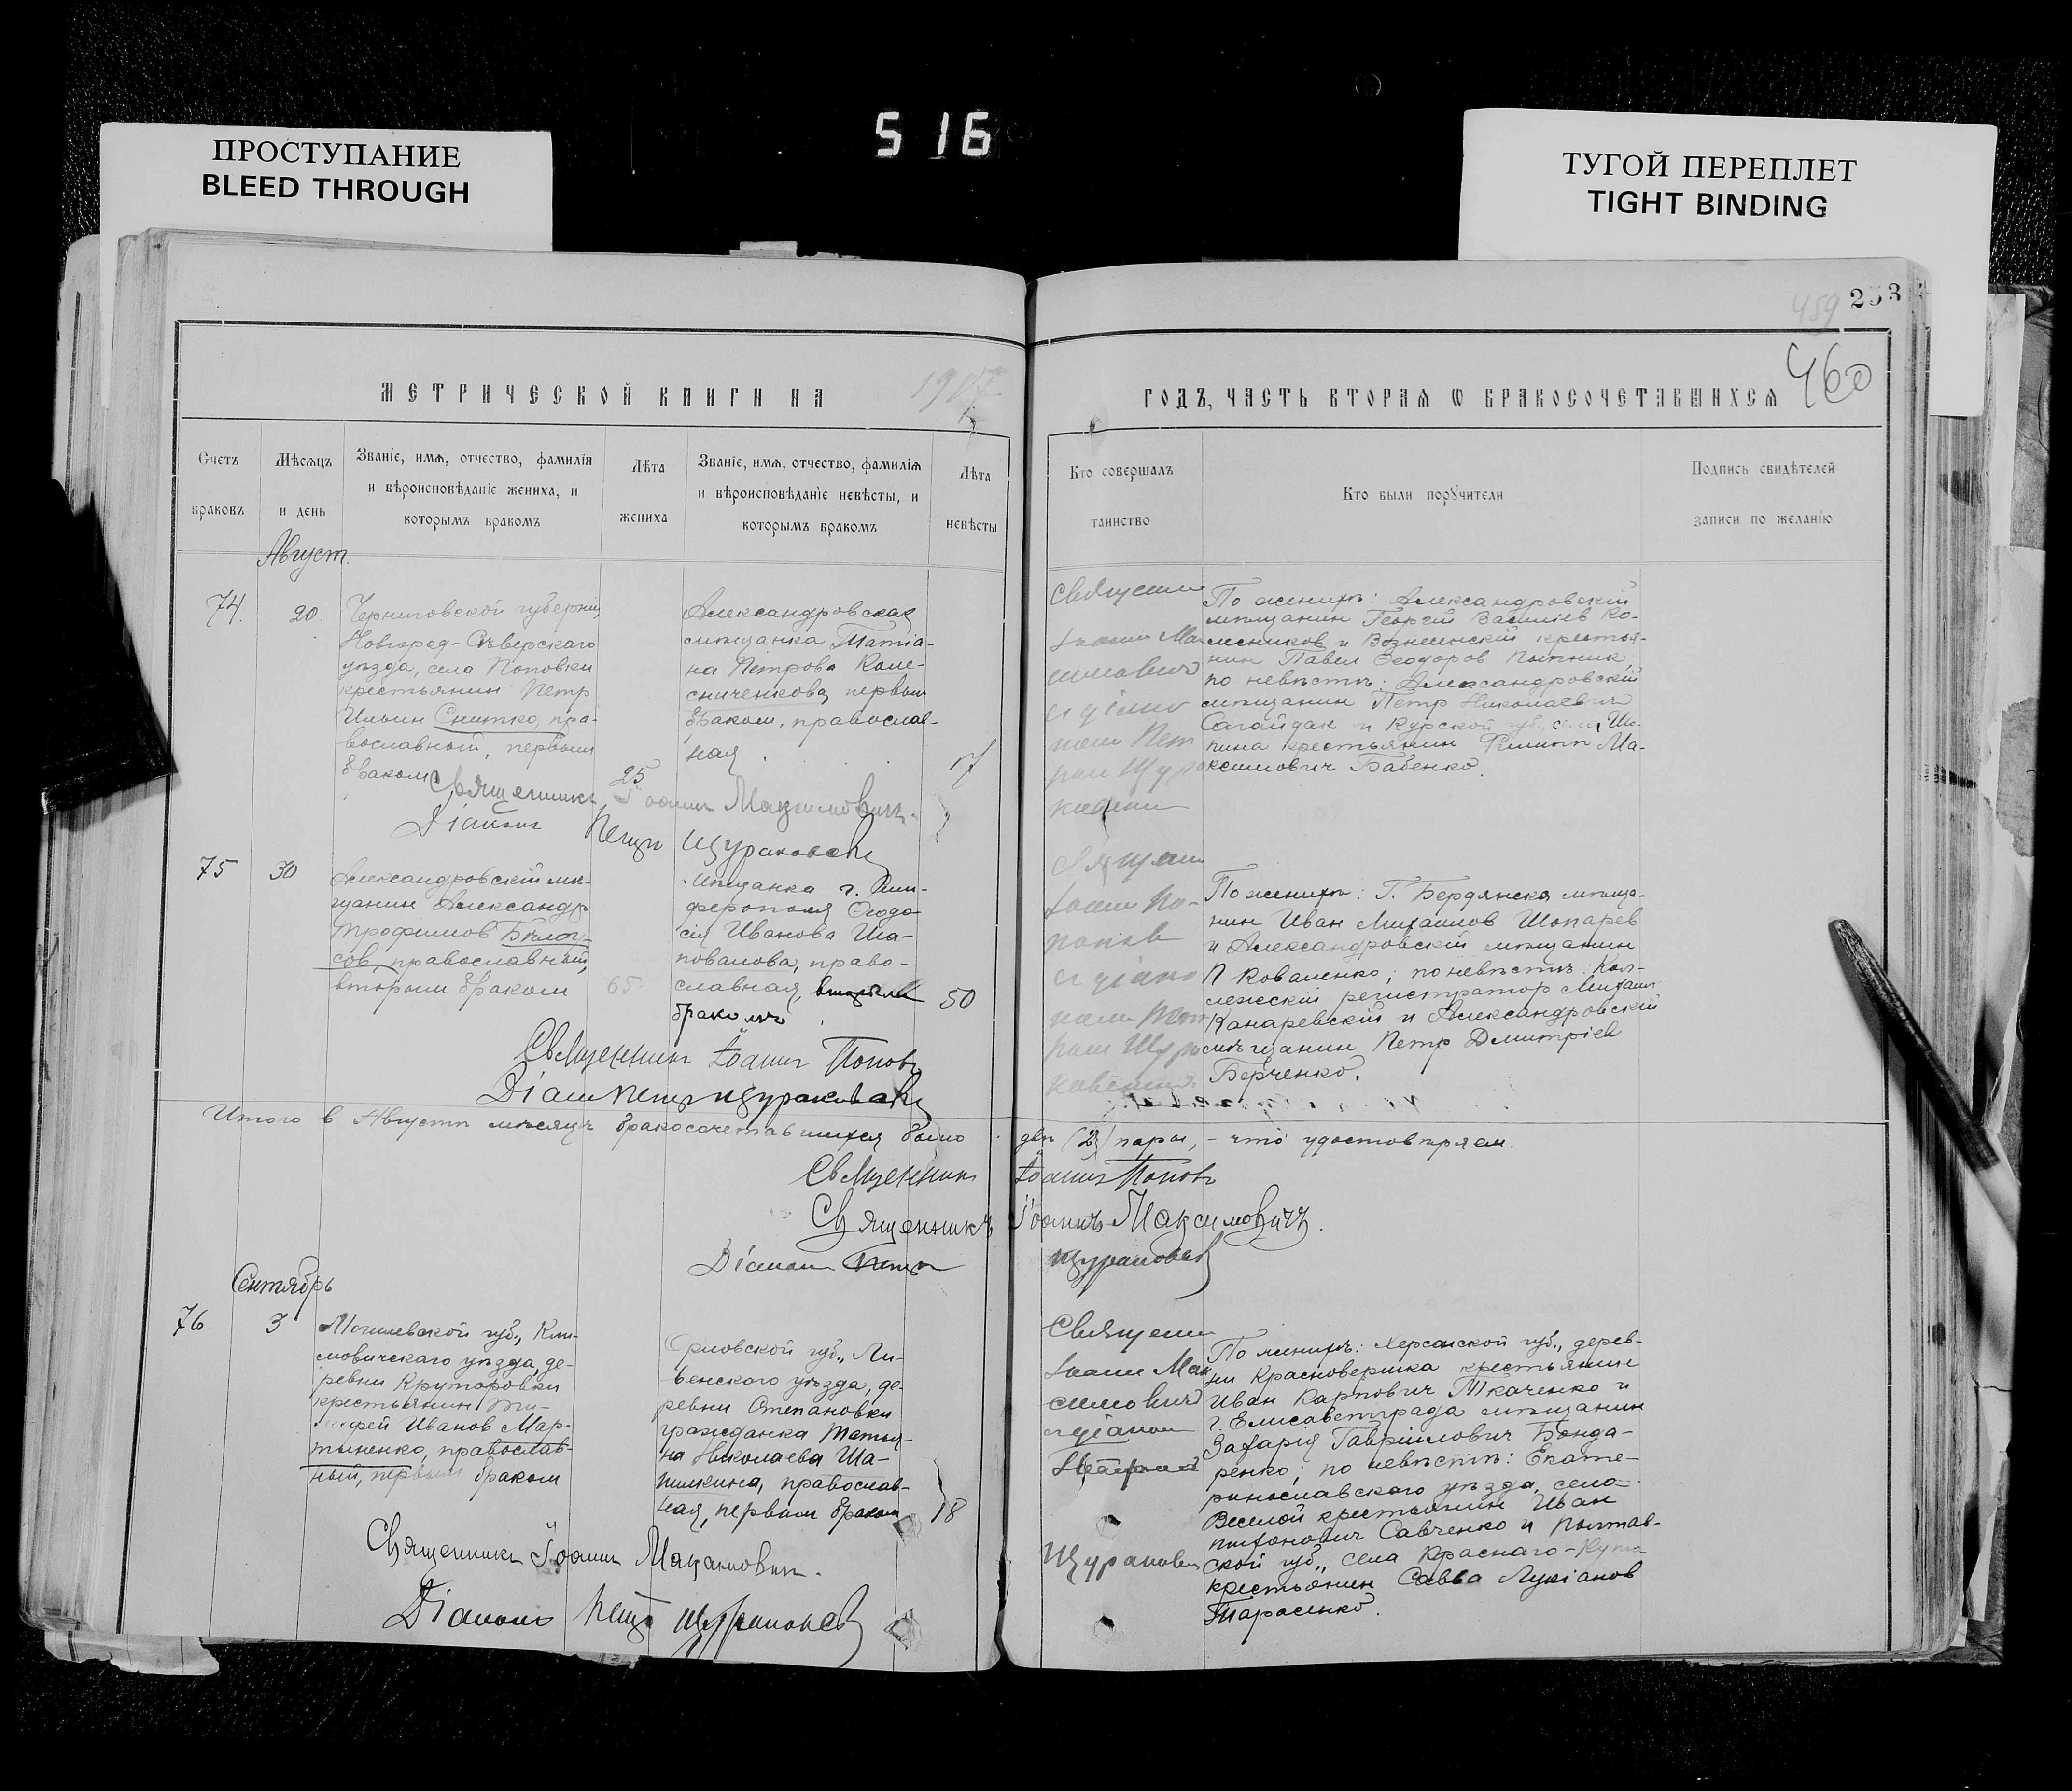 ПРОСТУПАНИЕ
BLEED THROUGH
516
ТУГОЙ ПЕРЕПЛЕТ
TIGHT BINDING
459 253
460
МЕТРИЧЕСКОЙ КНИГИ НА 1917
ГОДЪ, ЧАСТЬ ВТОРАЯ Ѡ БРАКОСОЧЕТАВШИХСЯ
Счетъ браковъ
Мѣсяцъ и день
Званіе, имя, отчество, фамилія
и вѣроисповѣданіе жениха, и
которымъ бракомъ
Лѣта жениха
Званіе, имя, отчество, фамилія
и вѣроисповѣданіе невѣсты, и
которымъ бракомъ
Лѣта невѣсты
Кто совершалъ таинство
Кто были порꙋчители
Подпись свидѣтелей
записи по желанію
Август.
74.
20.
Черниговской губерніи,
Новгород-Сѣверскаго
уѣзда, села Поповки
крестьянин Петр
Ильин Снитко, пра-
вославный, первым
браком
25
Александровская
мѣщанка Татіа-
на Петрова Коле-
сниченкова, первым
браком, православ-
ная.
17
Священник
Іоанн Мак
симович
и діако
ном Пет
ром Щура
По женихѣ: Александровскій
мѣщанин Георгій Васильев Ко-
лесников и Вознесенскій крестья-
нин Павел Ѳеодоров
по невѣстѣ: Александровскій
мѣщанин Петр Николаевич
Сагайдак и Курской губ., села
крестьянин Филипп Ма-
ксимович Бабенко.
Священник Іоанн Максимович.
Діакон Петр Щураковскій
75
30
Александровскій мѣ-
щанин Александр
Трофимов Бѣлоу-
сов, православный,
вторым браком
65.
Мѣщанка г. Сим-
ферополя Ѳеодо-
сія Иванова Ша-
повалова, право-
славная, вторым
браком
50
Священн
Іоанн По-
попов
и діако
ном Пет
ром Щура
По женихѣ: Г. Бердянска мѣща-
нин Иван Михаилов Шопарев
и Александровскій мѣщанин
П Коваленко; по невѣстѣ: Кол-
лежскій регистратор Михаил
Канаревскій и Александровскій
мѣщанин Петр Дмитріев
Берченко.
Священник Іоанн Попов
Діакон Петр Щураковскій
Итого в Августѣ мѣсяцѣ бракосочетавшихся было двѣ (2) пары, - что удостовѣряем.
Священник Іоанн Попов
Священникъ Іоаннъ Максимовичъ.
Діакон Петр Щураковскій
Сентябрь
76
3
Могилевской губ., Кли-
мовичскаго уѣзда, де-
ревни Круторовки
крестьянин Ти-
мофей Иванов Мар-
тыненко, православ-
ный, первым браком
Орловской губ., Ли-
венскаго уѣзда, де-
ревни Степановки
гражданка Татья-
на Николаева Ша-
пилкина, православ-
ная, первым браком
18
Священн
Іоанн Мак
симович
и діакон
Петром
Щураковск
По женихѣ: Херсонской губ., дерев-
ни Красновершка крестьянин
Иван Карпович Ткаченко и
г. Елисаветграда мѣщанин
Захарія Гавріилович Бонда-
ренко; по невѣстѣ: Екате-
ринославскаго уѣзда, село
Веселой крестьянин Иван
Савченко и Полтав-
ской губ., села Краснаго-Кута
крестьянин Савва Лукіанов
Тарасенко.
Священник Іоанн Максимович.
Діакон Петр Щураковскій